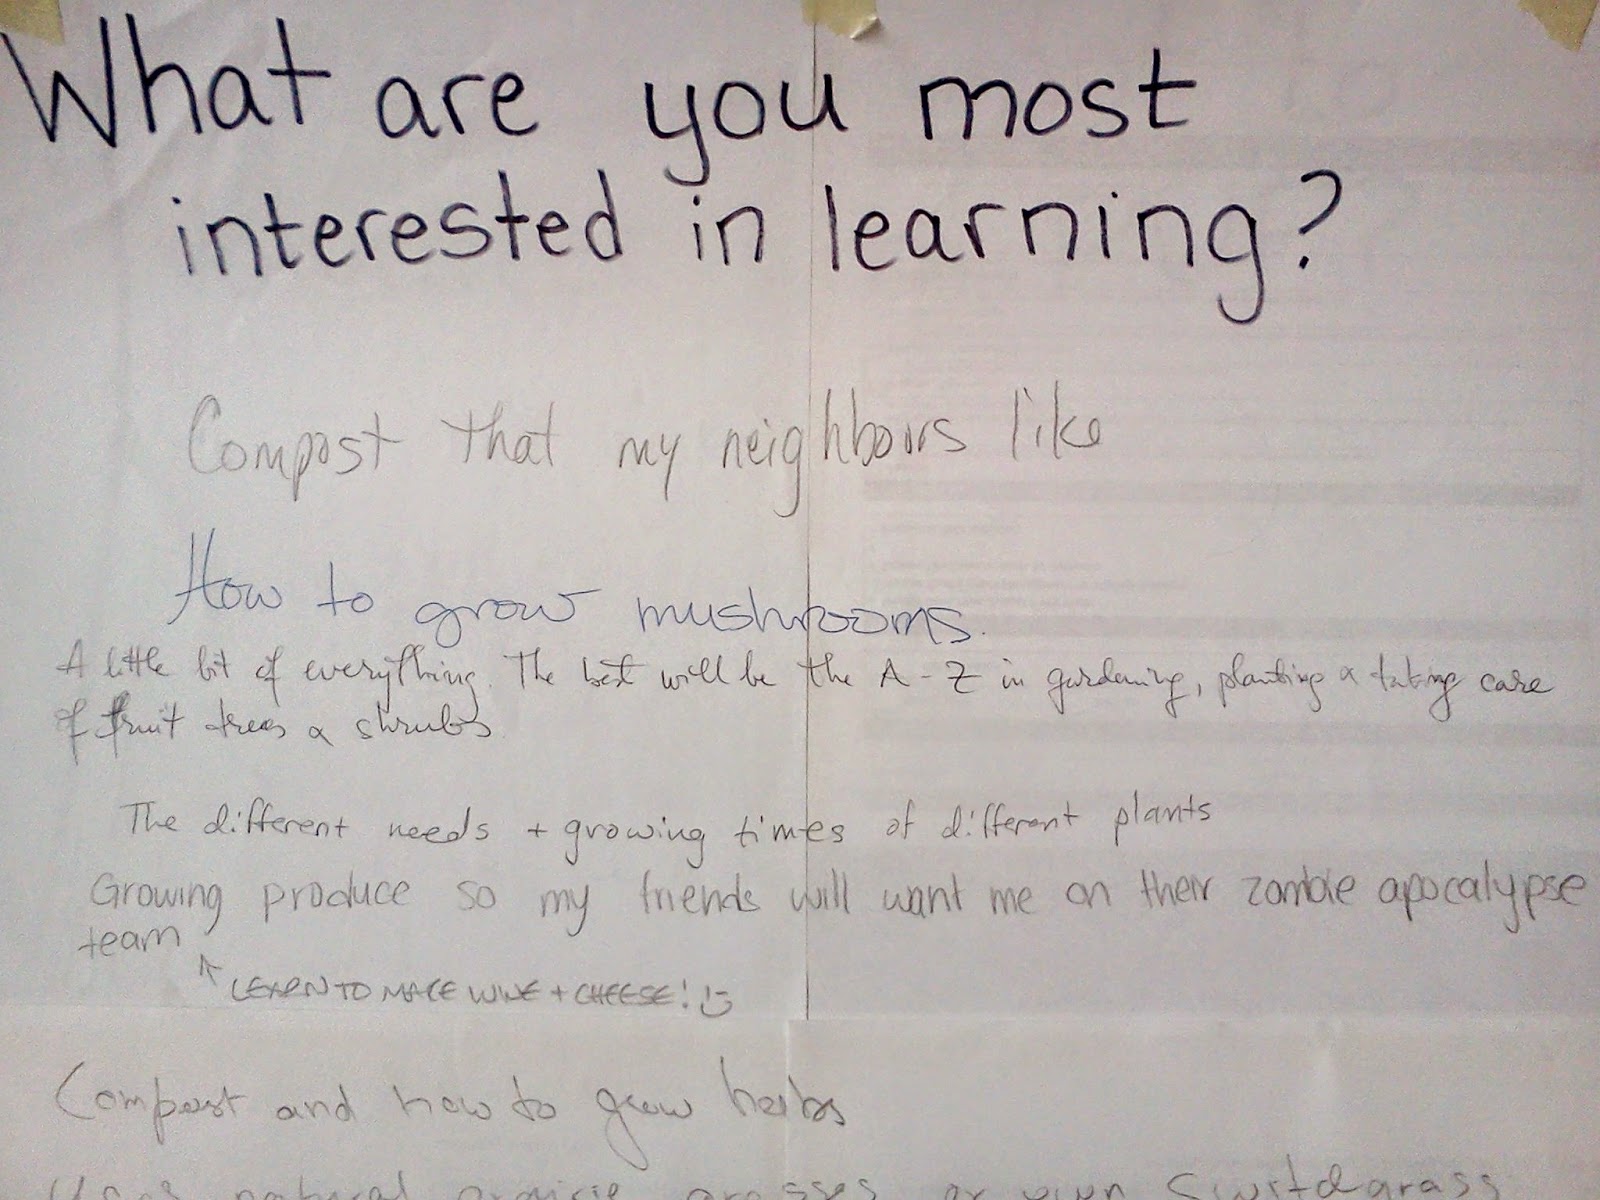 What are you most
interested in learning?
Compost that my neighbours like
How to grow mushrooms.
A little bit of everything. The best will be the A-Z in gardening, planting & taking care
of fruit trees & shrubs
The different needs + growing times of different plants
Growing produce so my friends will want me on their zombie apocalypse
team
↑ LEARN TO MAKE WINE + CHEESE! :)
Compost and how to grow herbs
natural prairie grasses or even Switchgrass